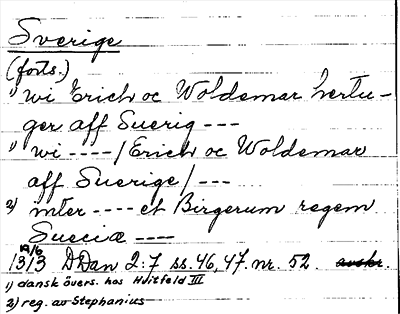 Sverige
(forts.)
1) wi Erich oc Woldemar hertu-
ger aff Suerig ---
1) wi ---- /Erich oc Woldemar
aff Suerige/ ---
2) inter ---- et Birgerum regem
Sueciæ ----
19/6
1313 DDan 2:7 ss. 46, 47. nr. 52. avskr.
1) dansk övers. hos Hvitfeld III
2) reg. av Stephanius